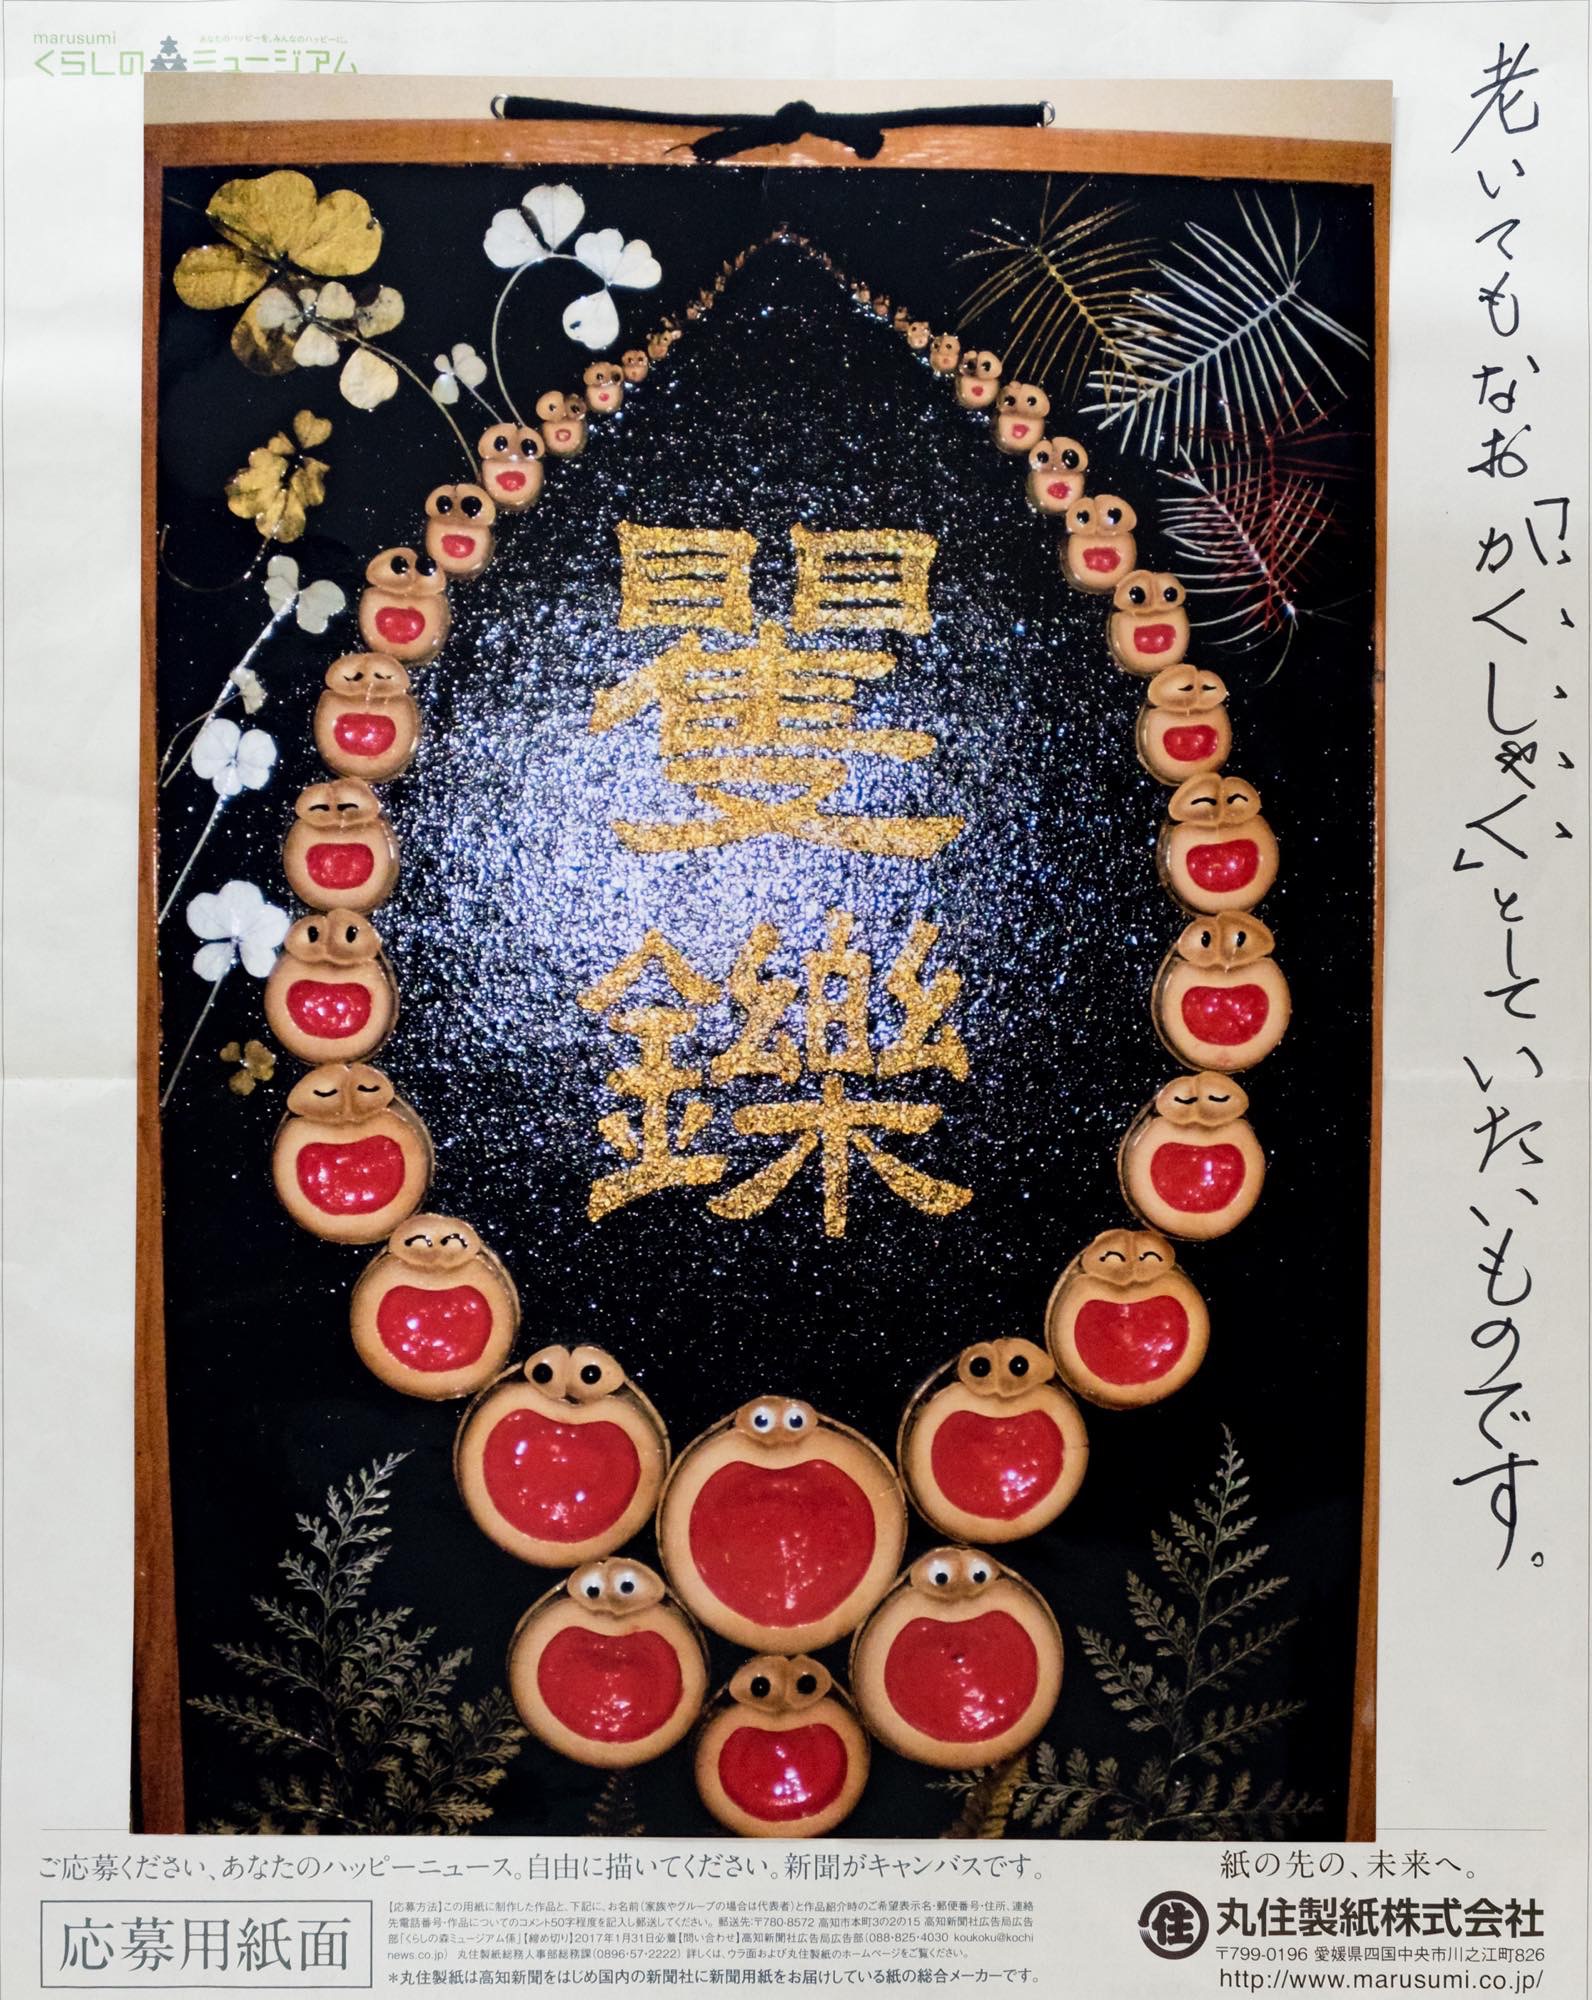 marusumi
あなたのハッピーを、みんなのハッピーに。
くらしの森ミュージアム
老いてもなお「かくしゃく」としていたいものです。
矍
鑠
ご応募ください、あなたのハッピーニュース。自由に描いてください。新聞がキャンバスです。
応募用紙面
【応募方法】この用紙に制作した作品と、下記に、お名前(家族やグループの場合は代表者)と作品紹介時のご希望表示名・郵便番号・住所、連絡
先電話番号・作品についてのコメント50字程度を記入し郵送してください。郵送先:〒780-8572 高知市本町3の2の15 高知新聞社広告局広告
部「くらしの森ミュージアム係」【締め切り】2017年1月31日必着【問い合わせ】高知新聞社広告局広告部(088・825・4030 koukoku@kochi
news.co.jp) 丸住製紙総務人事部総務課(0896・57・2222) 詳しくは、ウラ面および丸住製紙のホームページをご覧ください。
*丸住製紙は高知新聞をはじめ国内の新聞社に新聞用紙をお届けしている紙の総合メーカーです。
紙の先の、未来へ。
住 丸住製紙株式会社
〒799-0196 愛媛県四国中央市川之江町826
http://www.marusumi.co.jp/